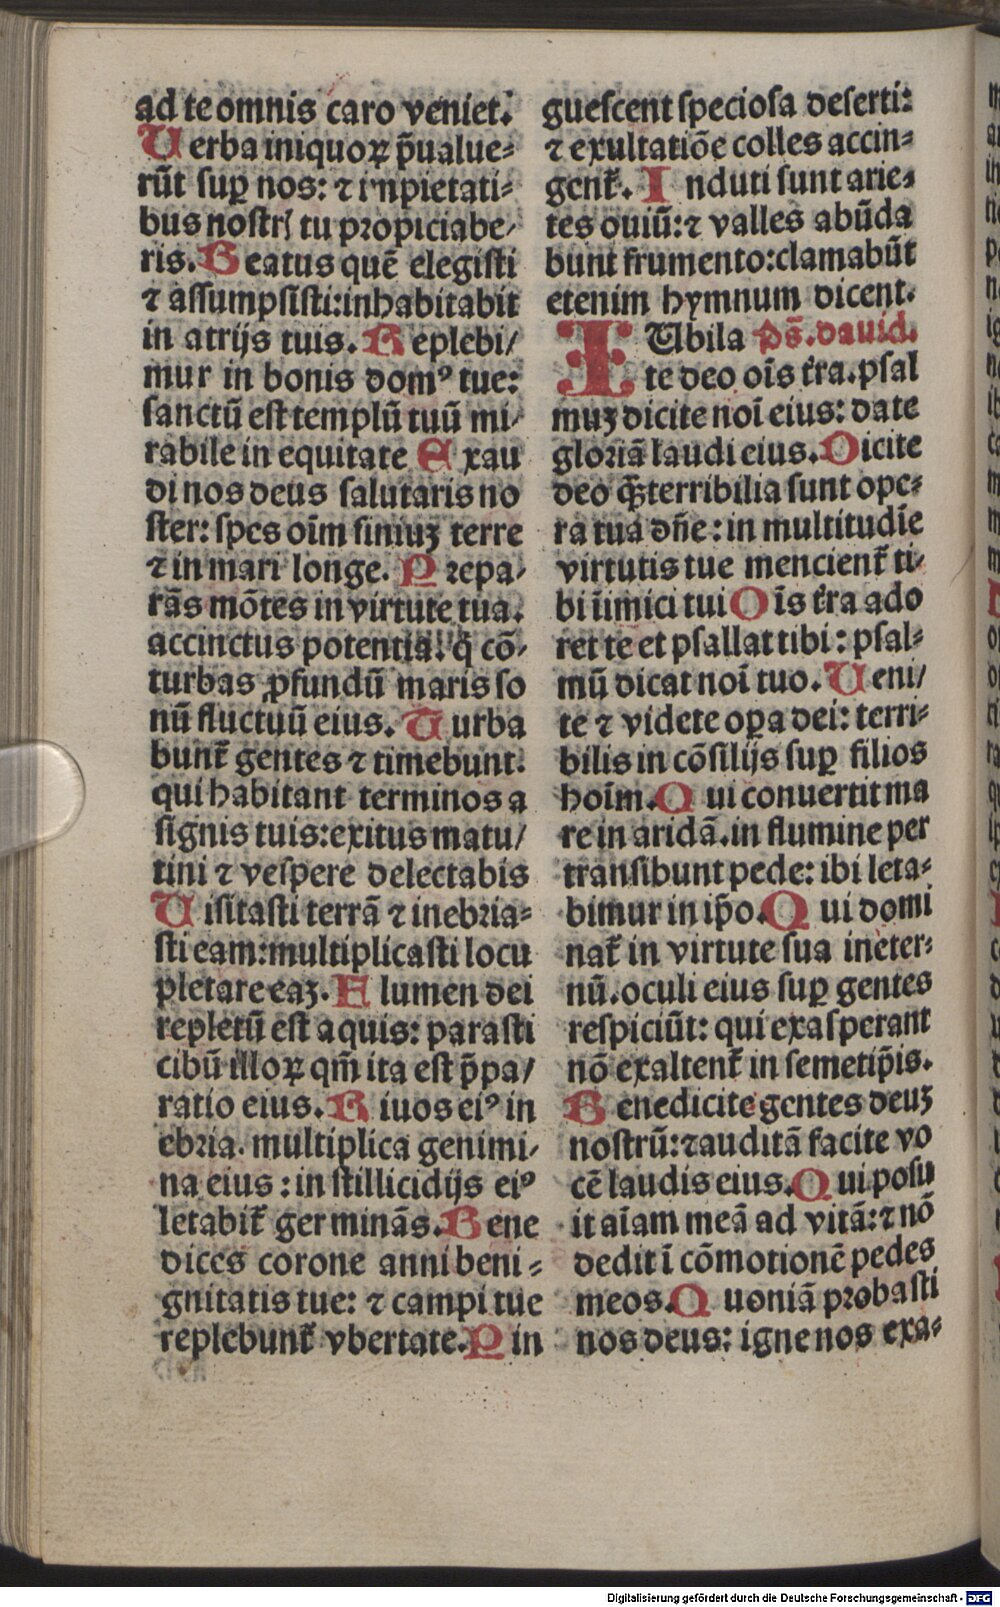 ad te omnis caro veniet.
Uerba iniquoꝝ p̄ualue⸗
rūt suꝑ nos: ⁊ inpietati⸗
bus nostrꝭ tu propiciabe/
ris. Beatus quē elegisti
⁊ assumpsisti: inhabitabit
in atrijs tuis. Replebi/
mur in bonis domꝰ tue:
sanctū est templū tuū mi/
rabile in equitate Exau
di nos deus salutaris no
ster: spes oīm finiuꝫ terre
⁊ in mari longe. Prepa/
rās mōtes in virtute tua.
accinctus potentia: q̇ cō/
turbas ꝓfundū maris so
nū fluctuū eius. Turba
bunt᷑ gentes ⁊ timebunt.
qui habitant terminos a
signis tuis: exitus matu/
tini ⁊ vespere delectabis
Uisitasti terrā ⁊ inebria⸗
sti eam: multiplicasti locu
pletare eaꝫ. Flumen dei
repletū est aquis: parasti
cibū illoꝝ qm̄ ita est p̄pa/
ratio eius. Riuos eiꝰ in
ebria. multiplica genimi/
na eius: in stillicidijs eiꝰ
letabit᷑ germinās. Bene
dices corone anni beni⸗
gnitatis tue: ⁊ campi tue
replebunt᷑ vbertate. Pin
guescent speciosa deserti:
⁊ exultatiōe colles accin⸗
gent᷑. Induti sunt arie⸗
tes ouiū: ⁊ valles abūda
bunt frumento: clamabūt
etenim hymnum dicent.
IUbila Ps̄. dauid.
te deo oīs t̄ra. psal
muꝫ dicite noī eius: date
gloriā laudi eius. Dicite
deo q̄ꝫ terribilia sunt ope⸗
ra tua dn̄e: in multitudīe
virtutis tue mencient᷑ ti/
bi inimici tui Oīs t̄ra ado
ret te et psallat tibi: psal⸗
mū dicat noī tuo. Ueni/
te ⁊ videte oꝑa dei: terri⸗
bilis in cōsilijs suꝑ filios
hoīm. Qui conuertit ma
re in aridā. in flumine per
transibunt pede: ibi leta⸗
bimur in ip̄o. Qui domi
nat᷑ in virtute sua in eter⸗
nū. oculi eius suꝑ gentes
respiciūt: qui exasperant
nō exaltent᷑ in semetip̄is.
Benedicite gentes deuꝫ
nostrū: ⁊ auditā facite vo
cē laudis eius. Qui posu
it aīam meā ad vitā: ⁊ nō
dedit ī cōmotionē pedes
meos. Quoniā probasti
nos deus: igne nos exa⸗
Digitalisierung gefördert durch die Deutsche Forschungsgemeinschaft - DFG